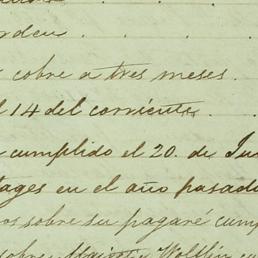 orden
cobre a tres meses.
14 del corriente.
cumplido el 20. de Ju
tages en el año pasad
os sobre su pagaré cump
sobre